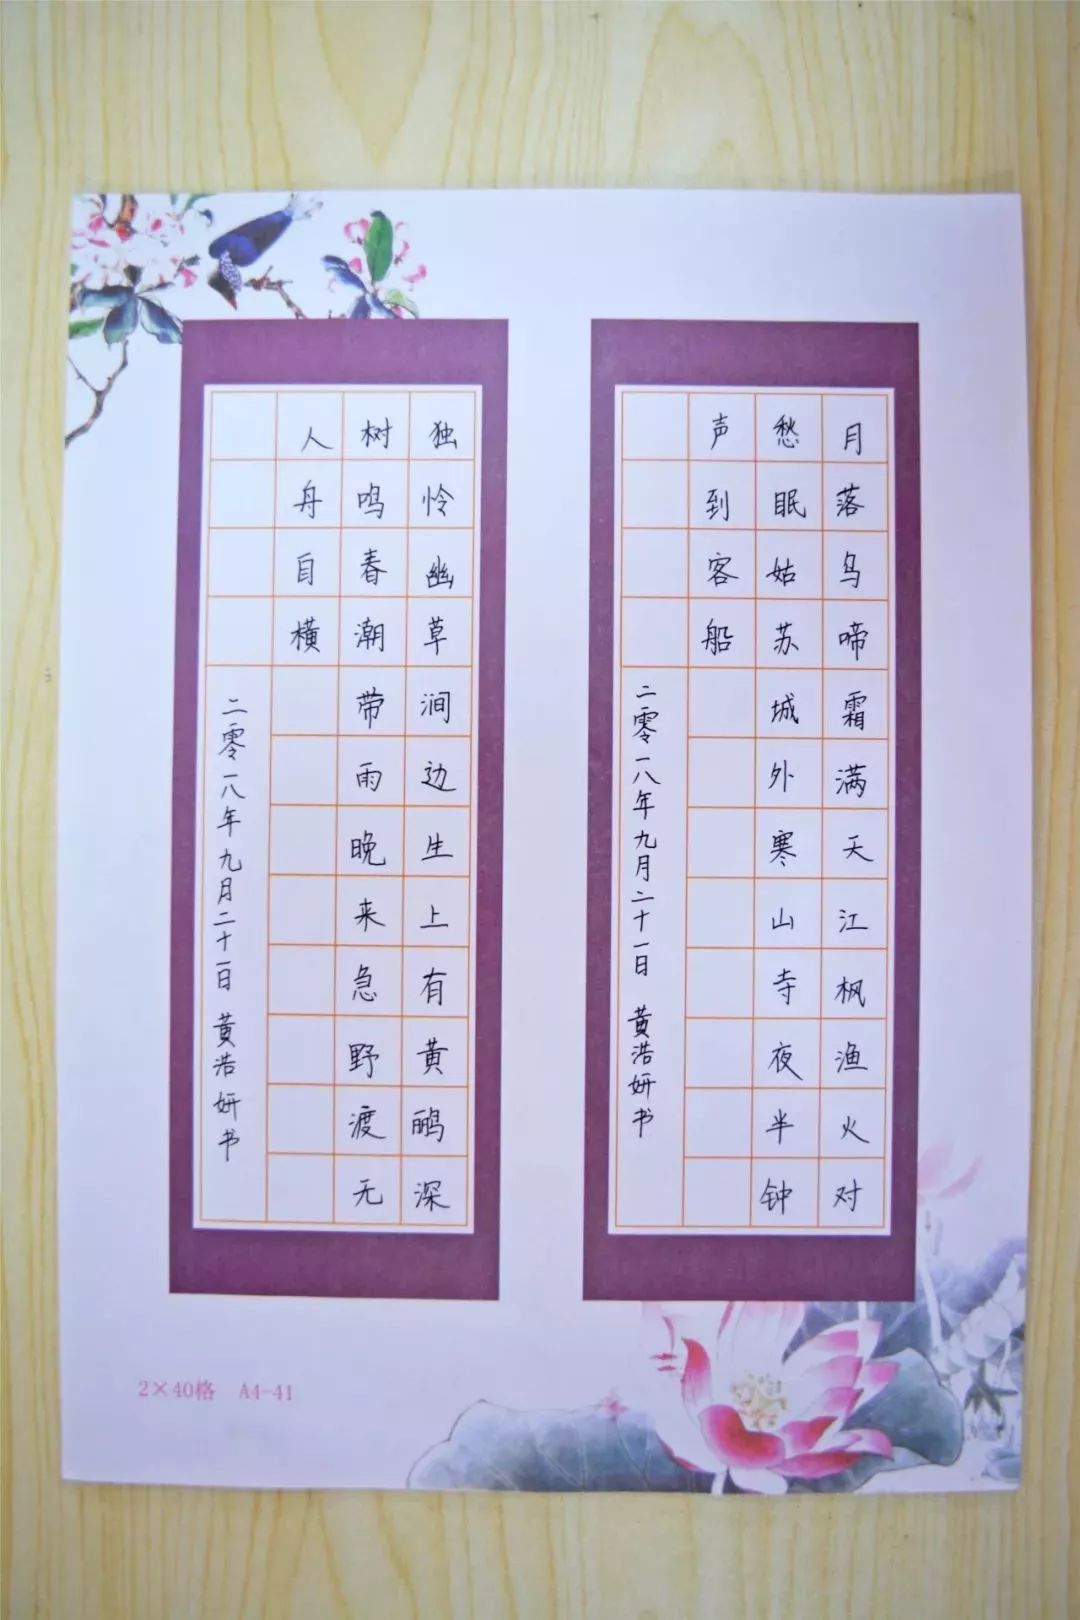 月落乌啼霜满天江枫渔火对
愁眠姑苏城外寒山寺夜半钟
声到客船
二零一八年九月二十一日 黄浩妍书
独怜幽草涧边生上有黄鹂深
树鸣春潮带雨晚来急野渡无
人舟自横
二零一八年九月二十一日 黄浩妍书
2×40格 A4-41